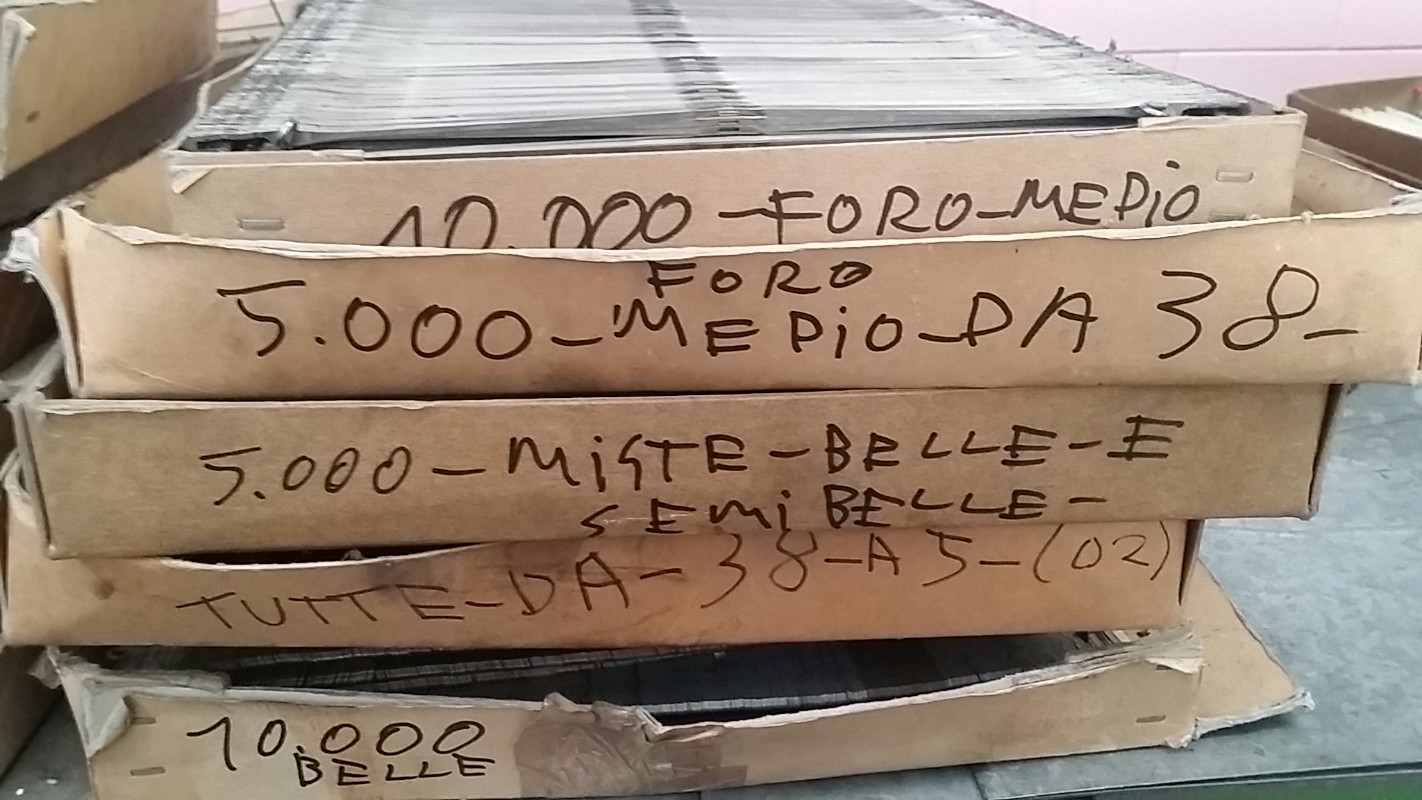 10.000-FORO-MEDIO
FORO
5.000-MEDIO-DA 38-
5.000-MISTE-BELLE-E
SEMIBELLE-
TUTTE-DA-38-A 5-(02)
10.000
BELLE